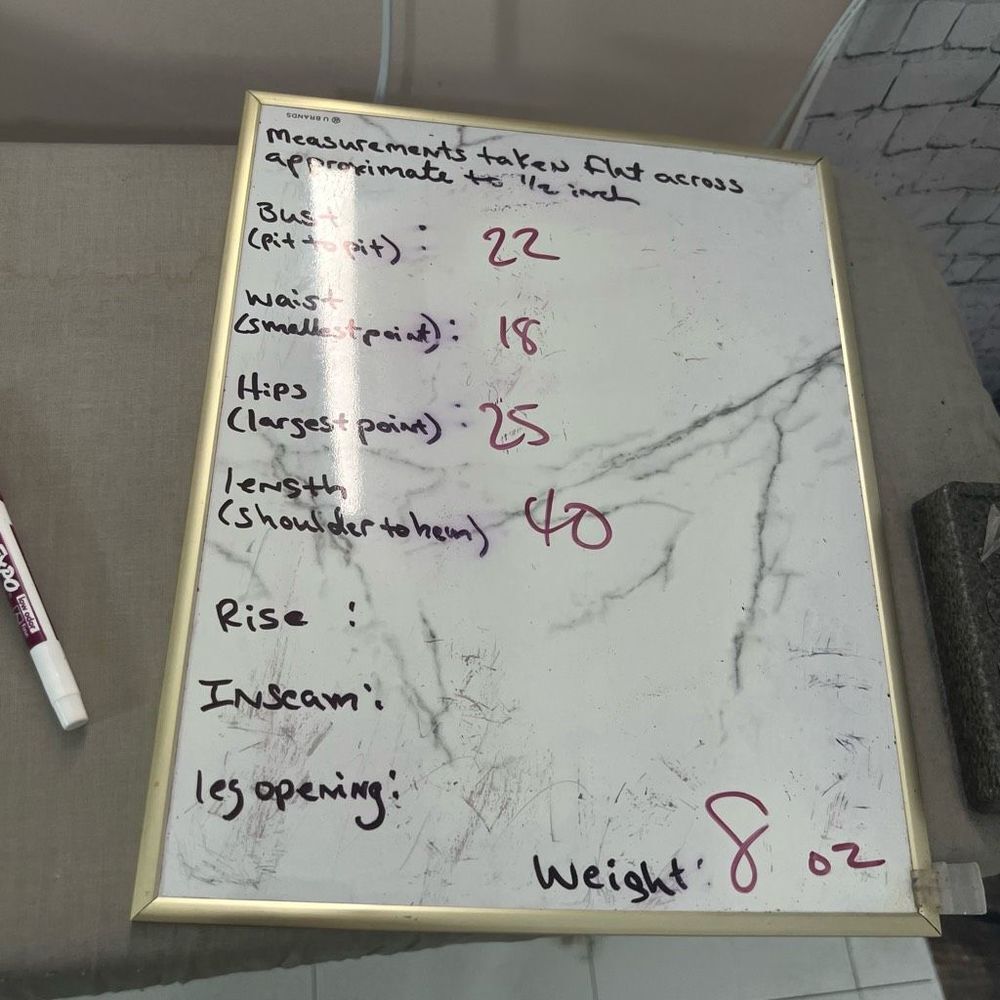 U BRANDS
Measurements taken flat across
approximate to 1/2 inch
Bust
(pit to pit) : 22
waist
(smallest point) : 18
Hips
(largest point) : 25
length
(shoulder to hem) 40
Rise :
Inseam :
leg opening :
Weight : 8 oz
EXPO
low odor